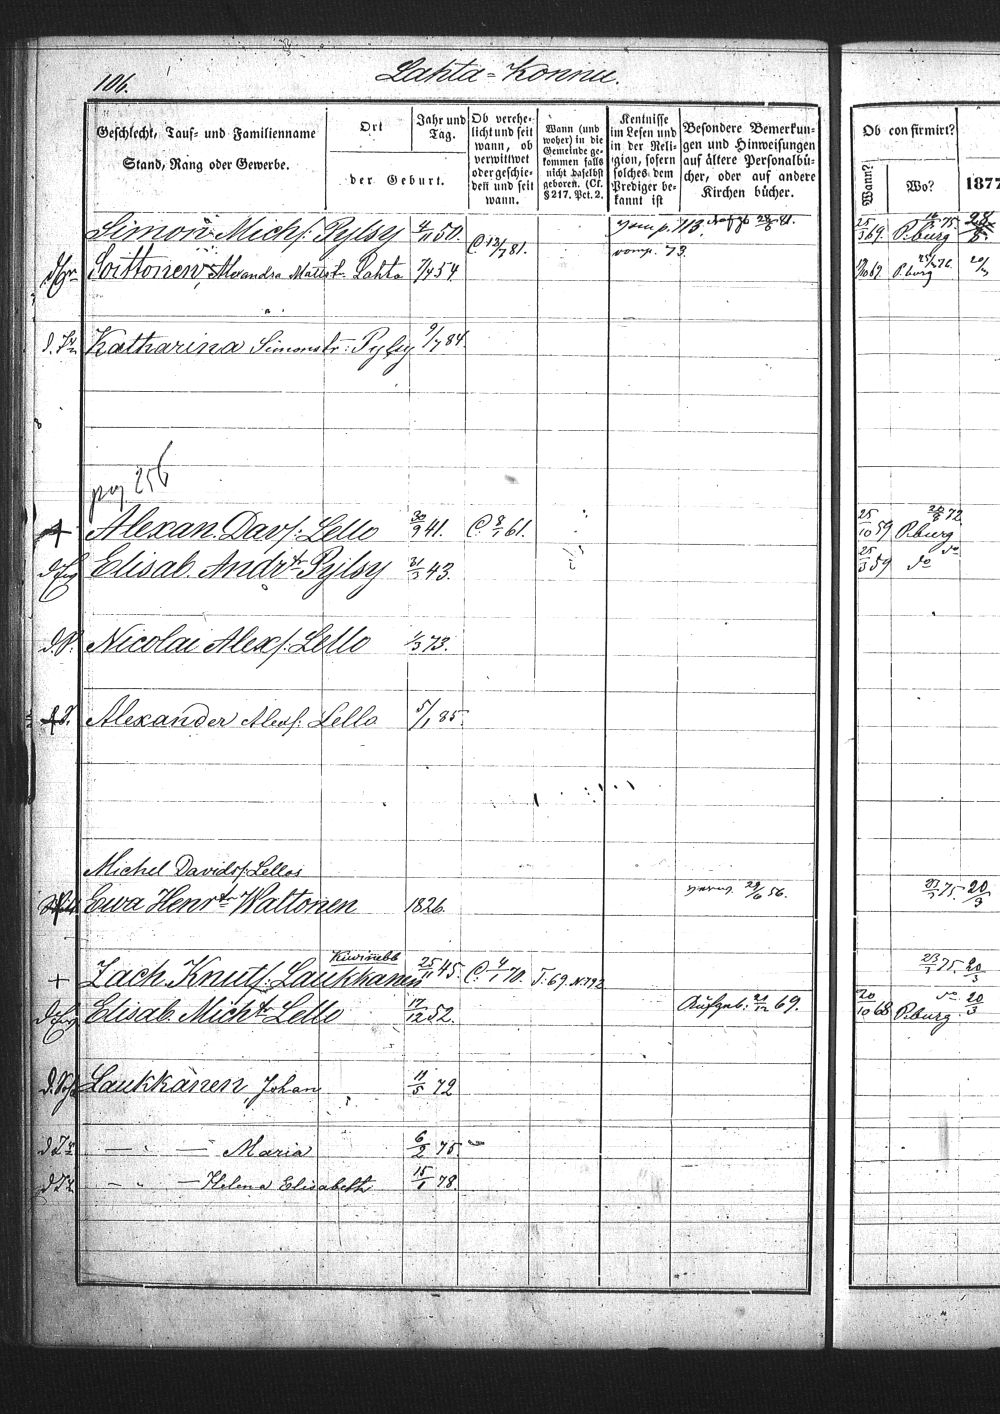 106.
Lahta-Konnu.
Geschlecht, Tauf- und Familienname
Stand, Rang oder Gewerbe.
Ort
der Geburt.
Jahr und
Tag.
Ob verehe-
licht und seit
wann, ob
verwittwet
oder geschie-
den und seit
wann.
Wann (und
woher) in die
Gemeinde ge-
kommen falls
nicht daselbst
geboren. (Cf.
§ 217. Pct. 2.
Kentnisse
im Lesen und
in der Reli-
gion, sofern
solches dem
Prediger be-
kannt ist
Besondere Bemerkun-
gen und Hinweisungen
auf ältere Personalbü-
cher, oder auf andere
Kirchen bücher.
Ob confirmirt?
Wann?
Wo?
1877
Simon Michs: Pylsy 50. C. 13/7 81. 25/3 69. P.burg 16/ 75. 28
Soittonen, Alexandra Mattstr. Lahta 54 P.burg
d. Tr. Katharina Simonstr: Pylsy 9/7 84.
pag. 256
+ Alexan. Davs: Lello 30/9 41. C. 8/1 61. 25/10 59 P.burg 72.
Elisab. Andrtr Pylsy 31/3 43. 25/3 59 do do
d. S. Nicolai Alexs: Lello 1/3 73.
d S. Alexander Alexs: Lello 5/1 85.
Michel Davids: Lellos
Ewa Henrtr Wattonen 1826. 29/6 56. 75. 20/3
Kiwinebb
+ Zach. Knuts: Laukkanen 25/11 45. C. 4/1 70. T. 69. N. 792 23/1 75. 20/3
Elisab. Michtr Lello 17/12 52. Aufgeb: 21/12 69. 20/10 68 P.burg. do 20/3
d. Laukkanen, Johan 11/5 72
d Tr — " — Maria 6/2 75
d Tr — " — Helena Elisabeth 15/1 78.